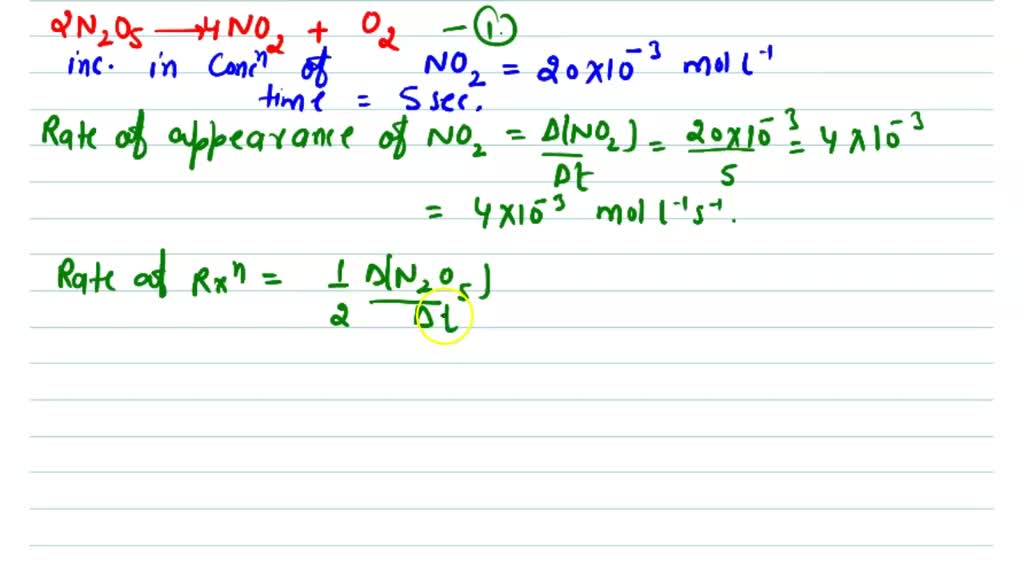 2N₂O₅ ⟶ 4NO₂ + O₂ - ①
inc. in Concⁿ of NO₂ = 20×10⁻³ mol l⁻¹
time = 5 sec.
Rate of appearance of NO₂ = Δ(NO₂)/Δt = 20×10⁻³/5 = 4×10⁻³
= 4×10⁻³ mol l⁻¹s⁻¹.
Rate of Rxⁿ = 1/2 Δ(N₂O₅)/Δt